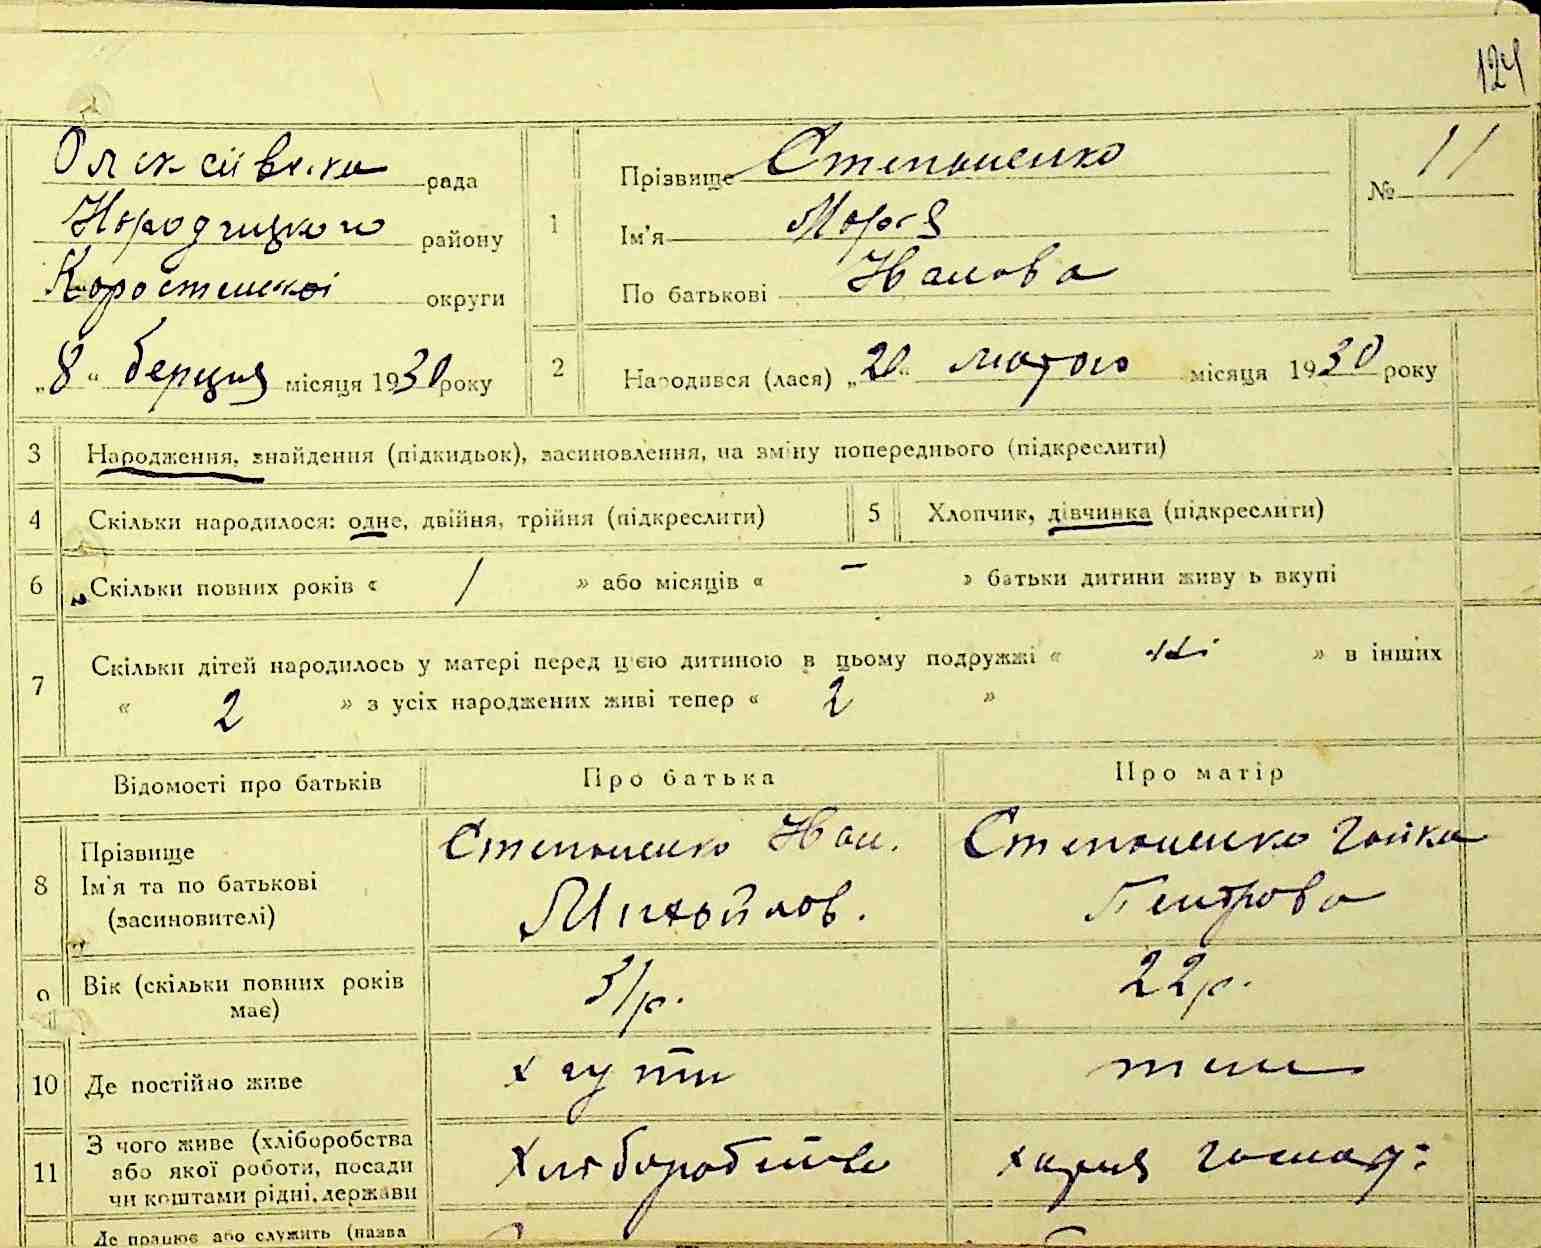 124
Олексіївська рада
Народицького району
Коростенської округи
„8“ берцня місяця 1930 року
1
Прізвище Степаненко
Ім'я Марія
По батькові Іванова
№ 11
2 Народився (лася) „20“ лютого місяця 1930 року
3 Народження, знайдення (підкидьок), засиновлення, на зміну попереднього (підкреслити)
4 Скільки народилося: одне, двійня, трійня (підкреслити)
5 Хлопчик, дівчинка (підкреслити)
6 Скільки повних років « 1 » або місяців « – » батьки дитини живуть вкупі
7 Скільки дітей народилось у матері перед цією дитиною в цьому подружжі « ні » в інших
« 2 » з усіх народжених живі тепер « 2 »
Відомості про батьків Про батька Про матір
8
Прізвище
Ім'я та по батькові
(засиновителі)
Степаненко Іван.
Михайлов.
Степаненко Ганка
Пентрова
9 Вік (скільки повних років
має)
31р.
22р.
10 Де постійно живе
11
З чого живе (хліборобства
або якої роботи, посади
чи коштами рідні, держави
Хліборобство
Де працює або служить (назва